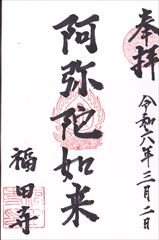 奉拝
令和六年三月二日
阿弥陀如来
福田寺